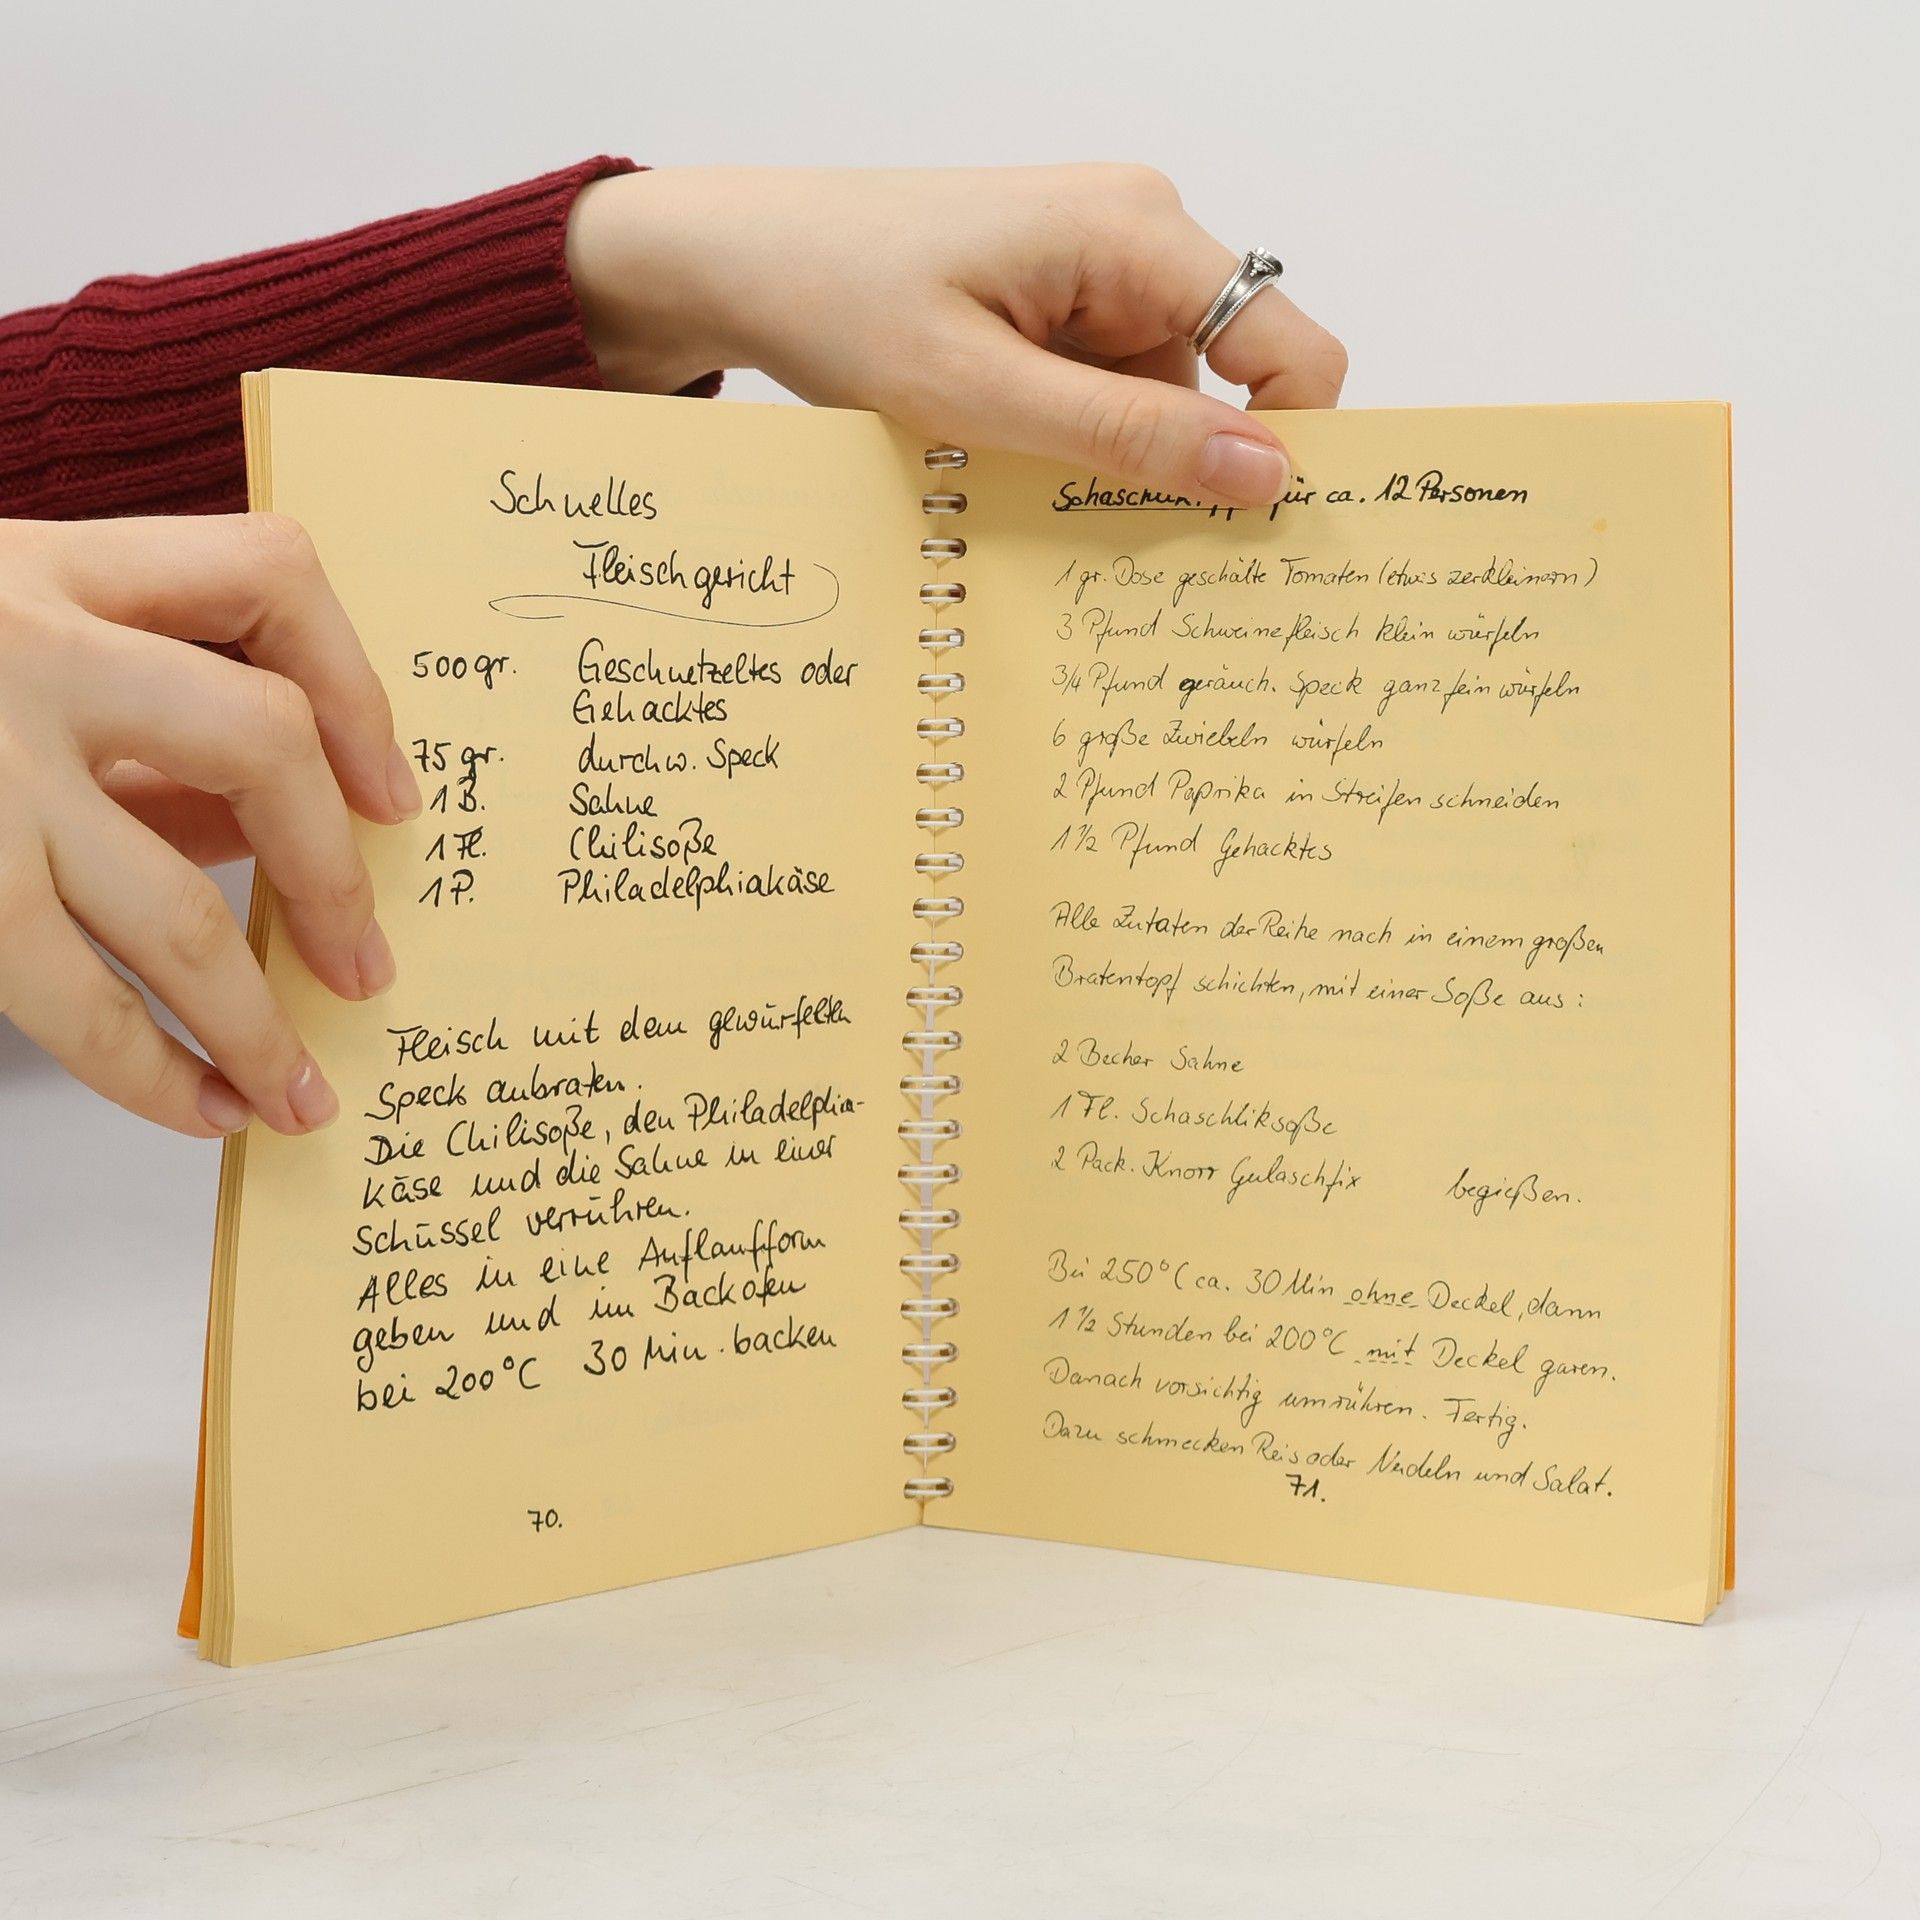 Schnelles
Fleischgericht
500gr. Geschnetzeltes oder
Gehacktes
75 gr. durchw. Speck
1B. Sahne
1 Fl. Chilisoße
1P. Philadelphiakäse
Fleisch mit dem gewürfelten
Speck anbraten.
Die Chilisoße, den Philadelphia-
käse und die Sahne in einer
Schüssel verrühren.
Alles in eine Auflaufform
geben und im Backofen
bei 200°C 30 Min. backen
70.
für ca. 12 Personen
1 gr. Dose geschälte Tomaten (etwas zerkleinern)
3 Pfund Schweinefleisch klein würfeln
3/4 Pfund geräuch. Speck ganz fein würfeln
6 große Zwiebeln würfeln
2 Pfund Paprika in Streifen schneiden
1 1/2 Pfund Gehacktes
Alle Zutaten der Reihe nach in einem großen
Bratentopf schichten, mit einer Soße aus:
2 Becher Sahne
1 Fl. Schaschliksoße
2 Pack. Knorr Gulaschfix begießen.
Bei 250°C ca. 30 Min ohne Deckel, dann
1 1/2 Stunden bei 200°C mit Deckel garen.
Danach vorsichtig umrühren. Fertig.
Dazu schmecken Reis oder Nudeln und Salat.
71.